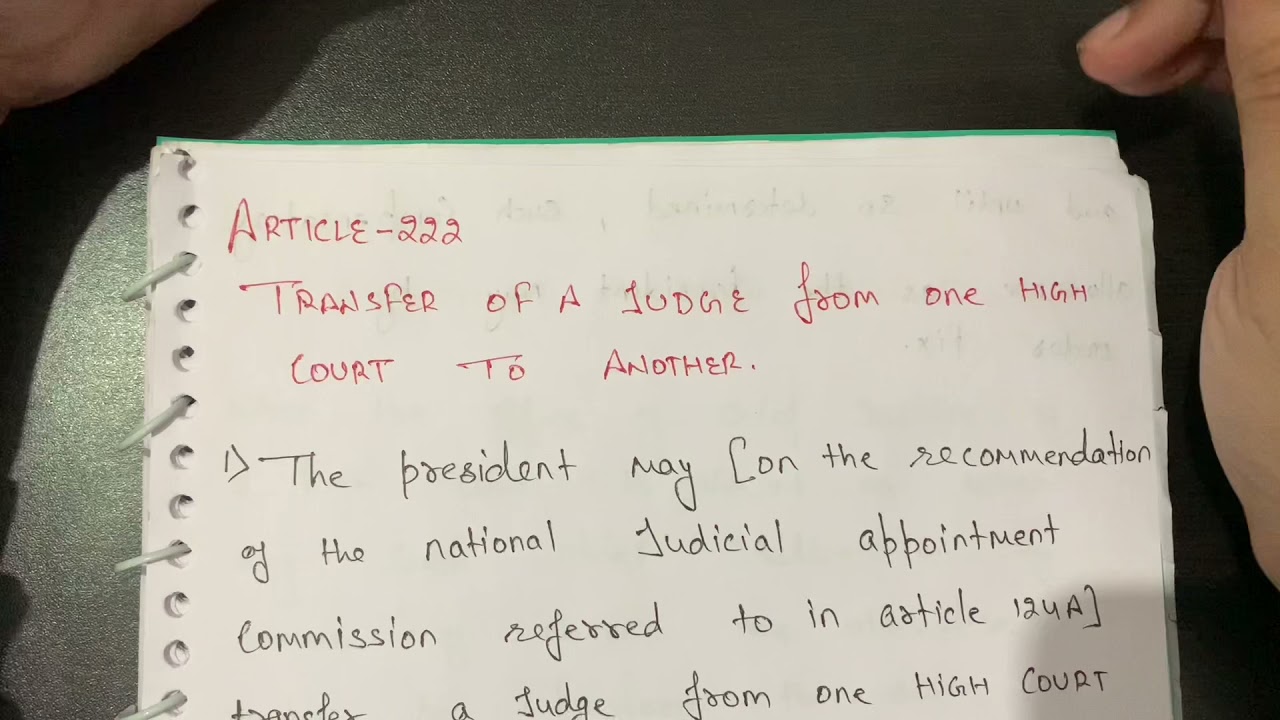 ARTICLE-222
TRANSFER OF A JUDGE from one HIGH
COURT TO ANOTHER.
1) The president may [on the recommendation
of the national Judicial appointment
Commission referred to in article 124A]
transfer a Judge from one HIGH COURT